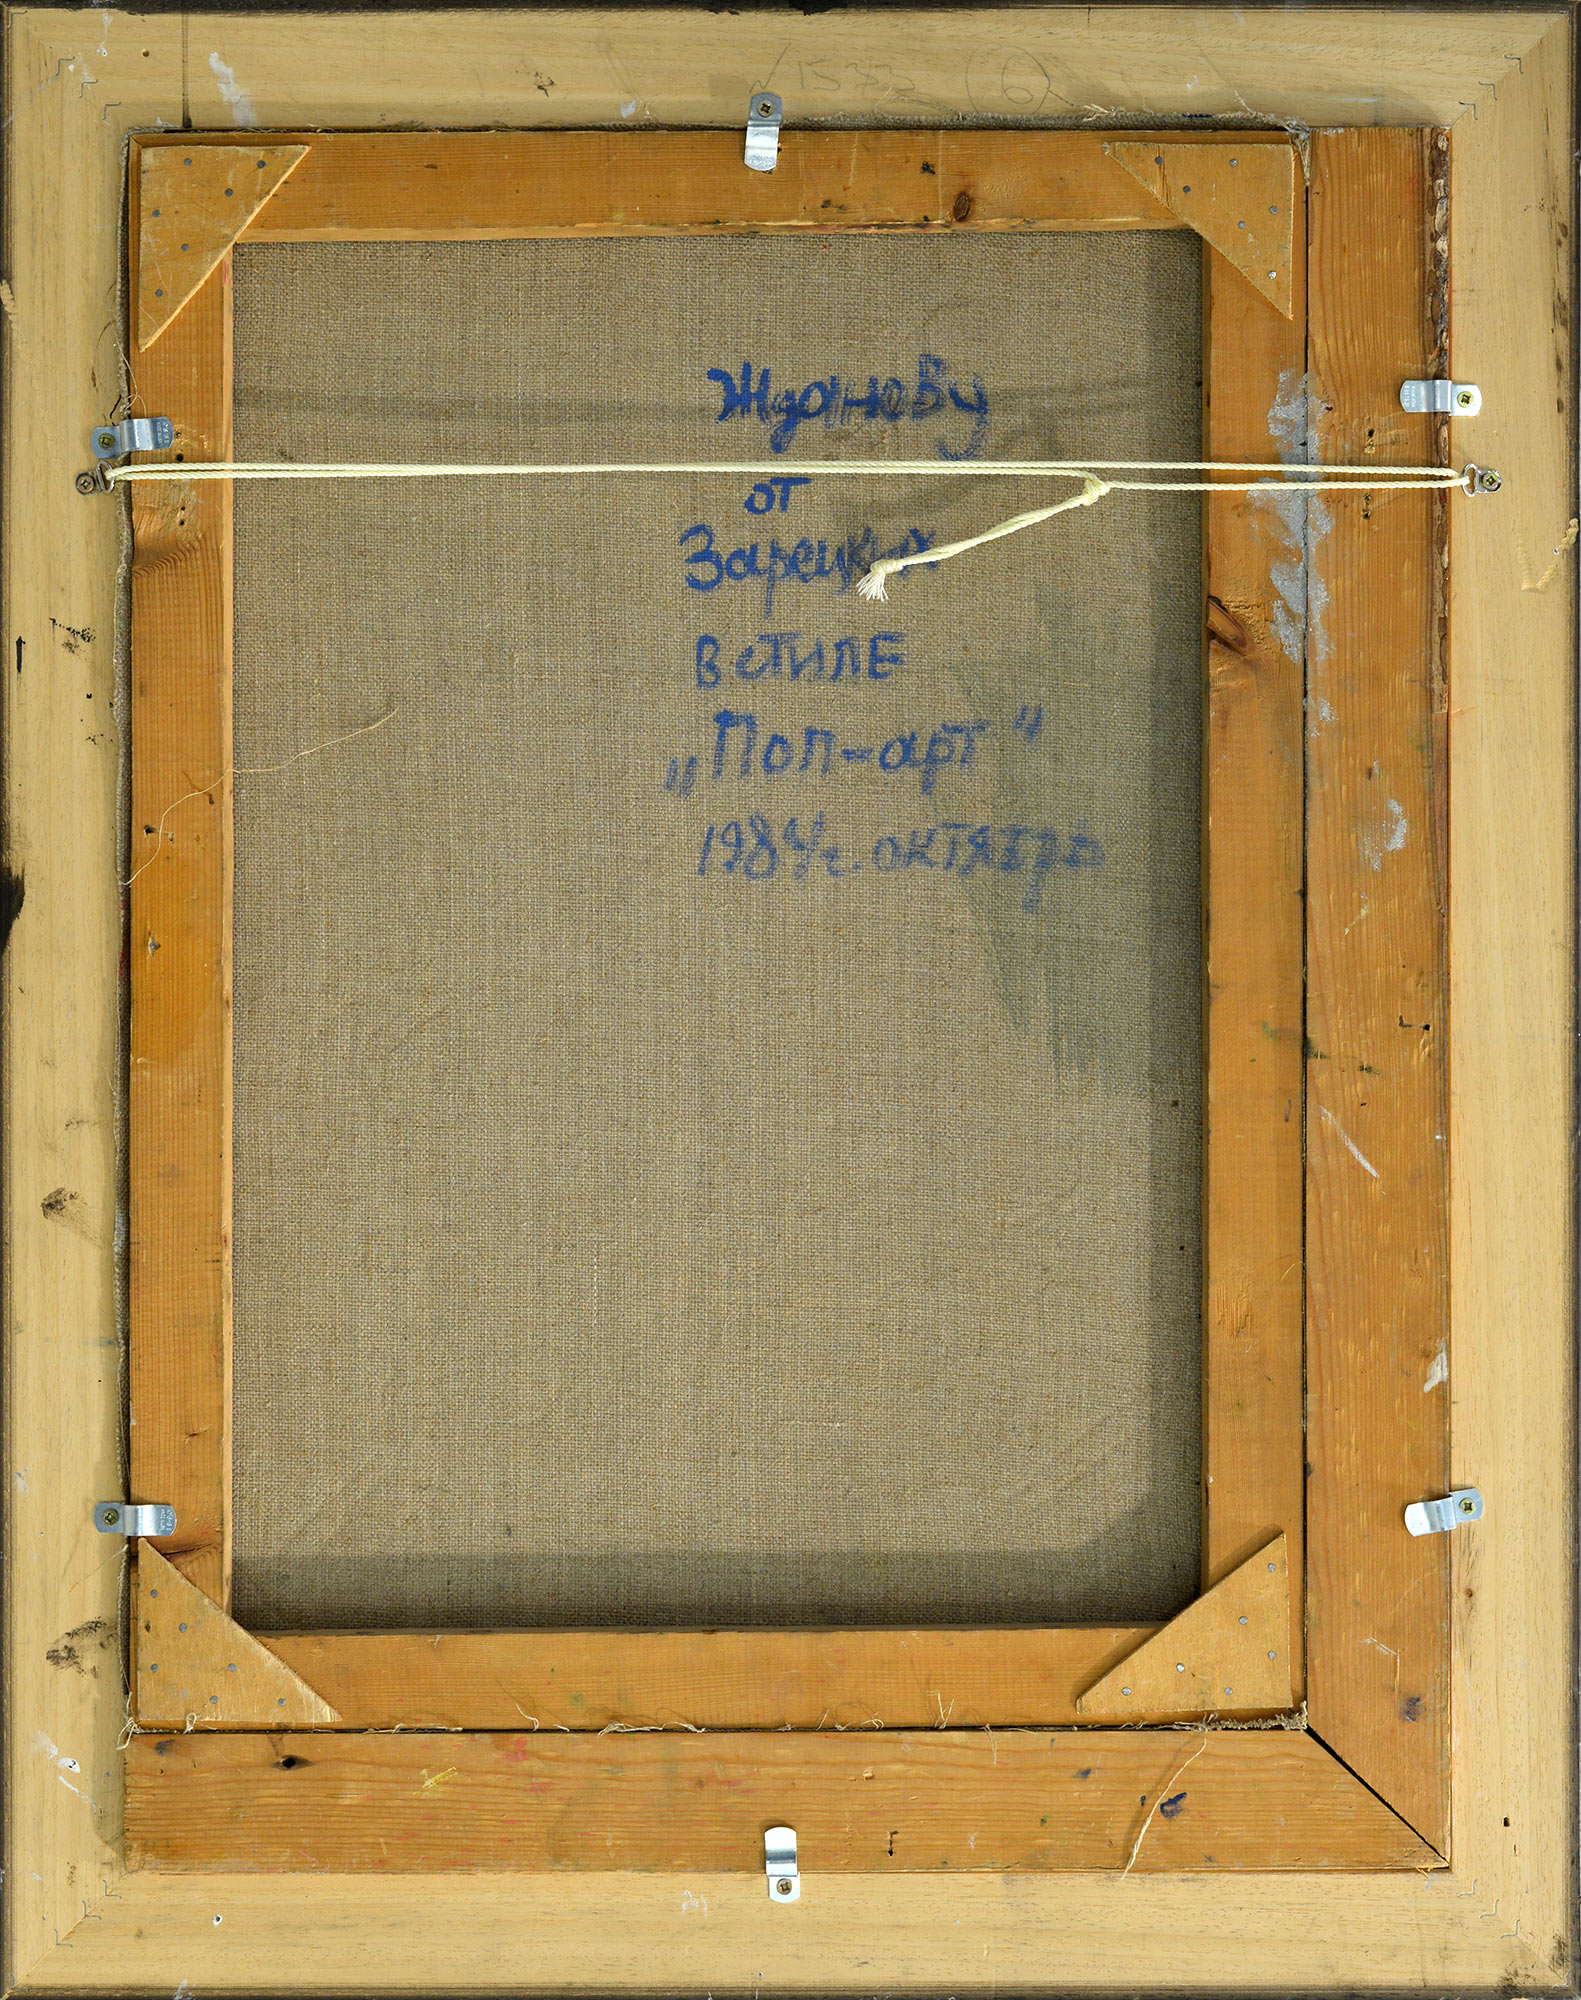 № 1533 (6)
Жданову
от
Зарецких
в стиле
„Поп-арт"
1984 г. октябрь